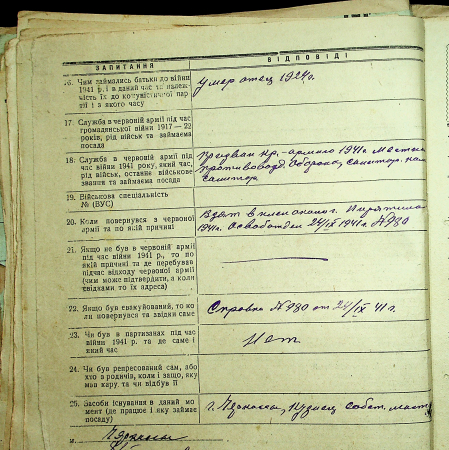 ЗАПИТАННЯ ВІДПОВІДІ
16. Чим займались батьки до війни
1941 р. і в даний час та належ-
чість їх до комуністичної пар
тії і з якого часу
Умер отец 1924 г.
17. Служба в червоній армії під час
громадянської війни 1917 — 22
років, рід військ та займаєма
посада
18. Служба в червоній армії під
час війни 1941 року, який час,
рід військ, останнє військове
звання та займаєма посада
Призван кр.-армию 1941 г. местная
противовозд. оборона, санитар.
санитар
19. Військова спеціальність
№ (ВУС)
20. Коли повернувся з червоної
армії та по якій причині
Взят в плен около г. Пирятина
1941 г. Освобожден 24/IX 1941 г. №980
21. Якщо не був в червоній армії
під час війни 1941 р., то по
якій причині та де перебував
під час відходу червоної армії
(чим може підтвердити, а коли
свідками то їх адреса)
22. Якщо був евакуйований, то ко
ли повернувся та звідки саме
Справка №980 от 24/IX 41 г.
23. Чи був в партизанах під час
війни 1941 р. та де саме і
який час
Нет
24. Чи був репресований сам, або
хто з родичів, коли і защо, яку
мав кару та чи відбув її
25. Засоби існування в даний мо
мент (де працює і яку займає
посаду)
г. Черкассы, кузнец собст. маст.
м. Черкассы